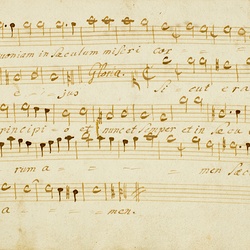 moniam in sæculum miseri cor
jus Gloria. Si cut era
rincipi o et nunc et semper et in sæcu
rum a men sæc
a men.